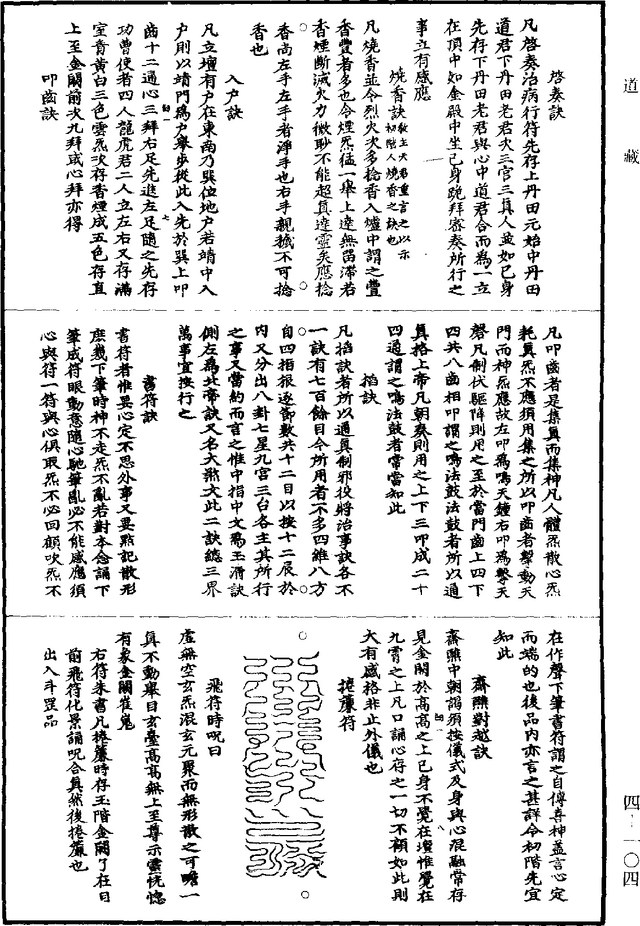 道藏
啓奏訣
凡啓奏治病行符先存上丹田元始中丹田
道君下丹田老君次三官三真人並如已身
先存下丹田老君與心中道君合而為一立
在頂中如金殿中坐已身跪拜啓奏所行之
事立有感應
燒香訣
凡燒香並令烈火次多捻香入爐中謂之豐
香豐者多也令煙炁猛一舉上達無留滯若
香煙斷滅火力微眇不能超真達靈矣應捻
香尚左手左手者淨手也右手親穢不可捻
香也
入户訣
凡立壇有户在東南乃巽位地户若靖中入
户則以靖門為户舉步從此入先於巽上叩
齒十二通心三拜右足先進左足隨之先存
功曹使者四人龍虎君二人立左右又存滿
室青黃白三色雲炁次存香煙成五色存直
上至金闕前次九拜或心拜亦得
叩齒訣
凡叩齒者是集真而集神凡人體炁散心炁
耗真炁不應須用集之所以叩齒者擊動天
門而神炁應故左叩為鳴天鐘右叩為擊天
磬凡制伏驅降則用之至於當門齒上四下
四共八齒相叩謂之鳴法鼓法鼓者所以通
真格上帝凡朝奏則用之上下三叩成二十
四通謂之鳴法鼓者常當如此
掐訣
凡掐訣者所以通真制邪役將治事訣各不
一訣有七百餘目今所用者不多四維八方
自四指根逐節數共十二目以按十二辰於
内又分出八卦七星九宮三台各主其所行
之事又當約而言之惟中指中文為玉清訣
側左為北帝訣又名大煞文此二訣總三界
萬事宜按行之
書符訣
書符者惟要心定不思外事又要黙記散形
庶幾下筆時神不走炁不亂若對本念誦下
筆成符眼動意隨心馳筆亂必不能感應須
心與符一符與心俱取炁不必回顧吹炁不
在作聲下筆書符謂之自傳喜神蓋言心定
而端的也後品内亦言之甚詳今初階先宜
知此
齋醮對越訣
齋醮中朝謁須按儀式及身與心混融常存
見金闕於高高之上已身不覺在壇惟覺在
九霄之上凡口誦心存之一切不顧如此則
大有感格非止外儀也
捲簾符
飛符時呪曰
虚無空玄炁混玄元聚而無形散之可瞻一
真不動舉目玄臺高高無上至尊示靈恍惚
有象金闕崔嵬
右符朱書凡捲簾時存玉階金闕了在目
前飛符化景誦呪合真然後捲簾也
出入斗罡品
四－一〇四